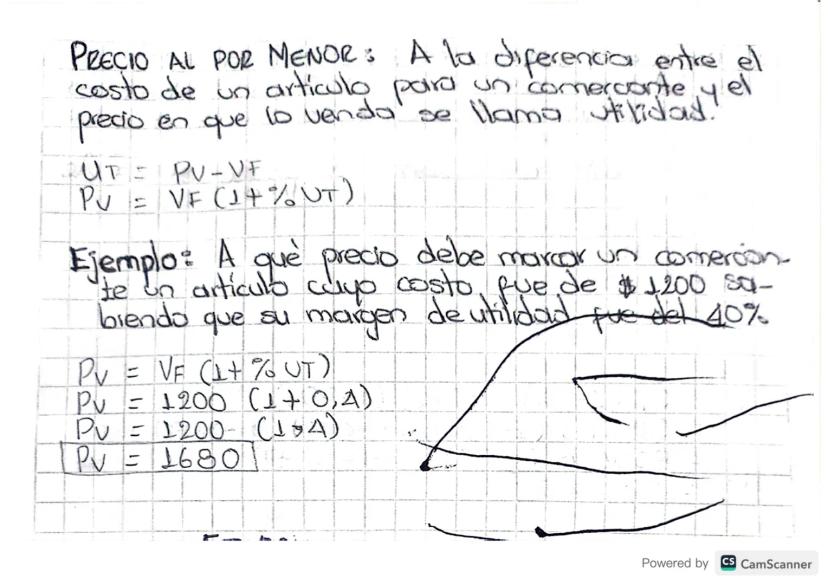 PRECIO AL POR MENOR: A la diferencia entre el
costo de un artículo para un comerciante y el
precio en que lo venda se llama utilidad.
UT = PV - VF
PV = VF (1 + % UT)
Ejemplo: A qué precio debe marcar un comercian-
te un artículo cuyo costo fue de $ 1200 sa-
biendo que su margen de utilidad fue del 40%
PV = VF (1 + % UT)
PV = 1200 (1 + 0,4)
PV = 1200 (1,4)
PV = 1680
Powered by CS CamScanner